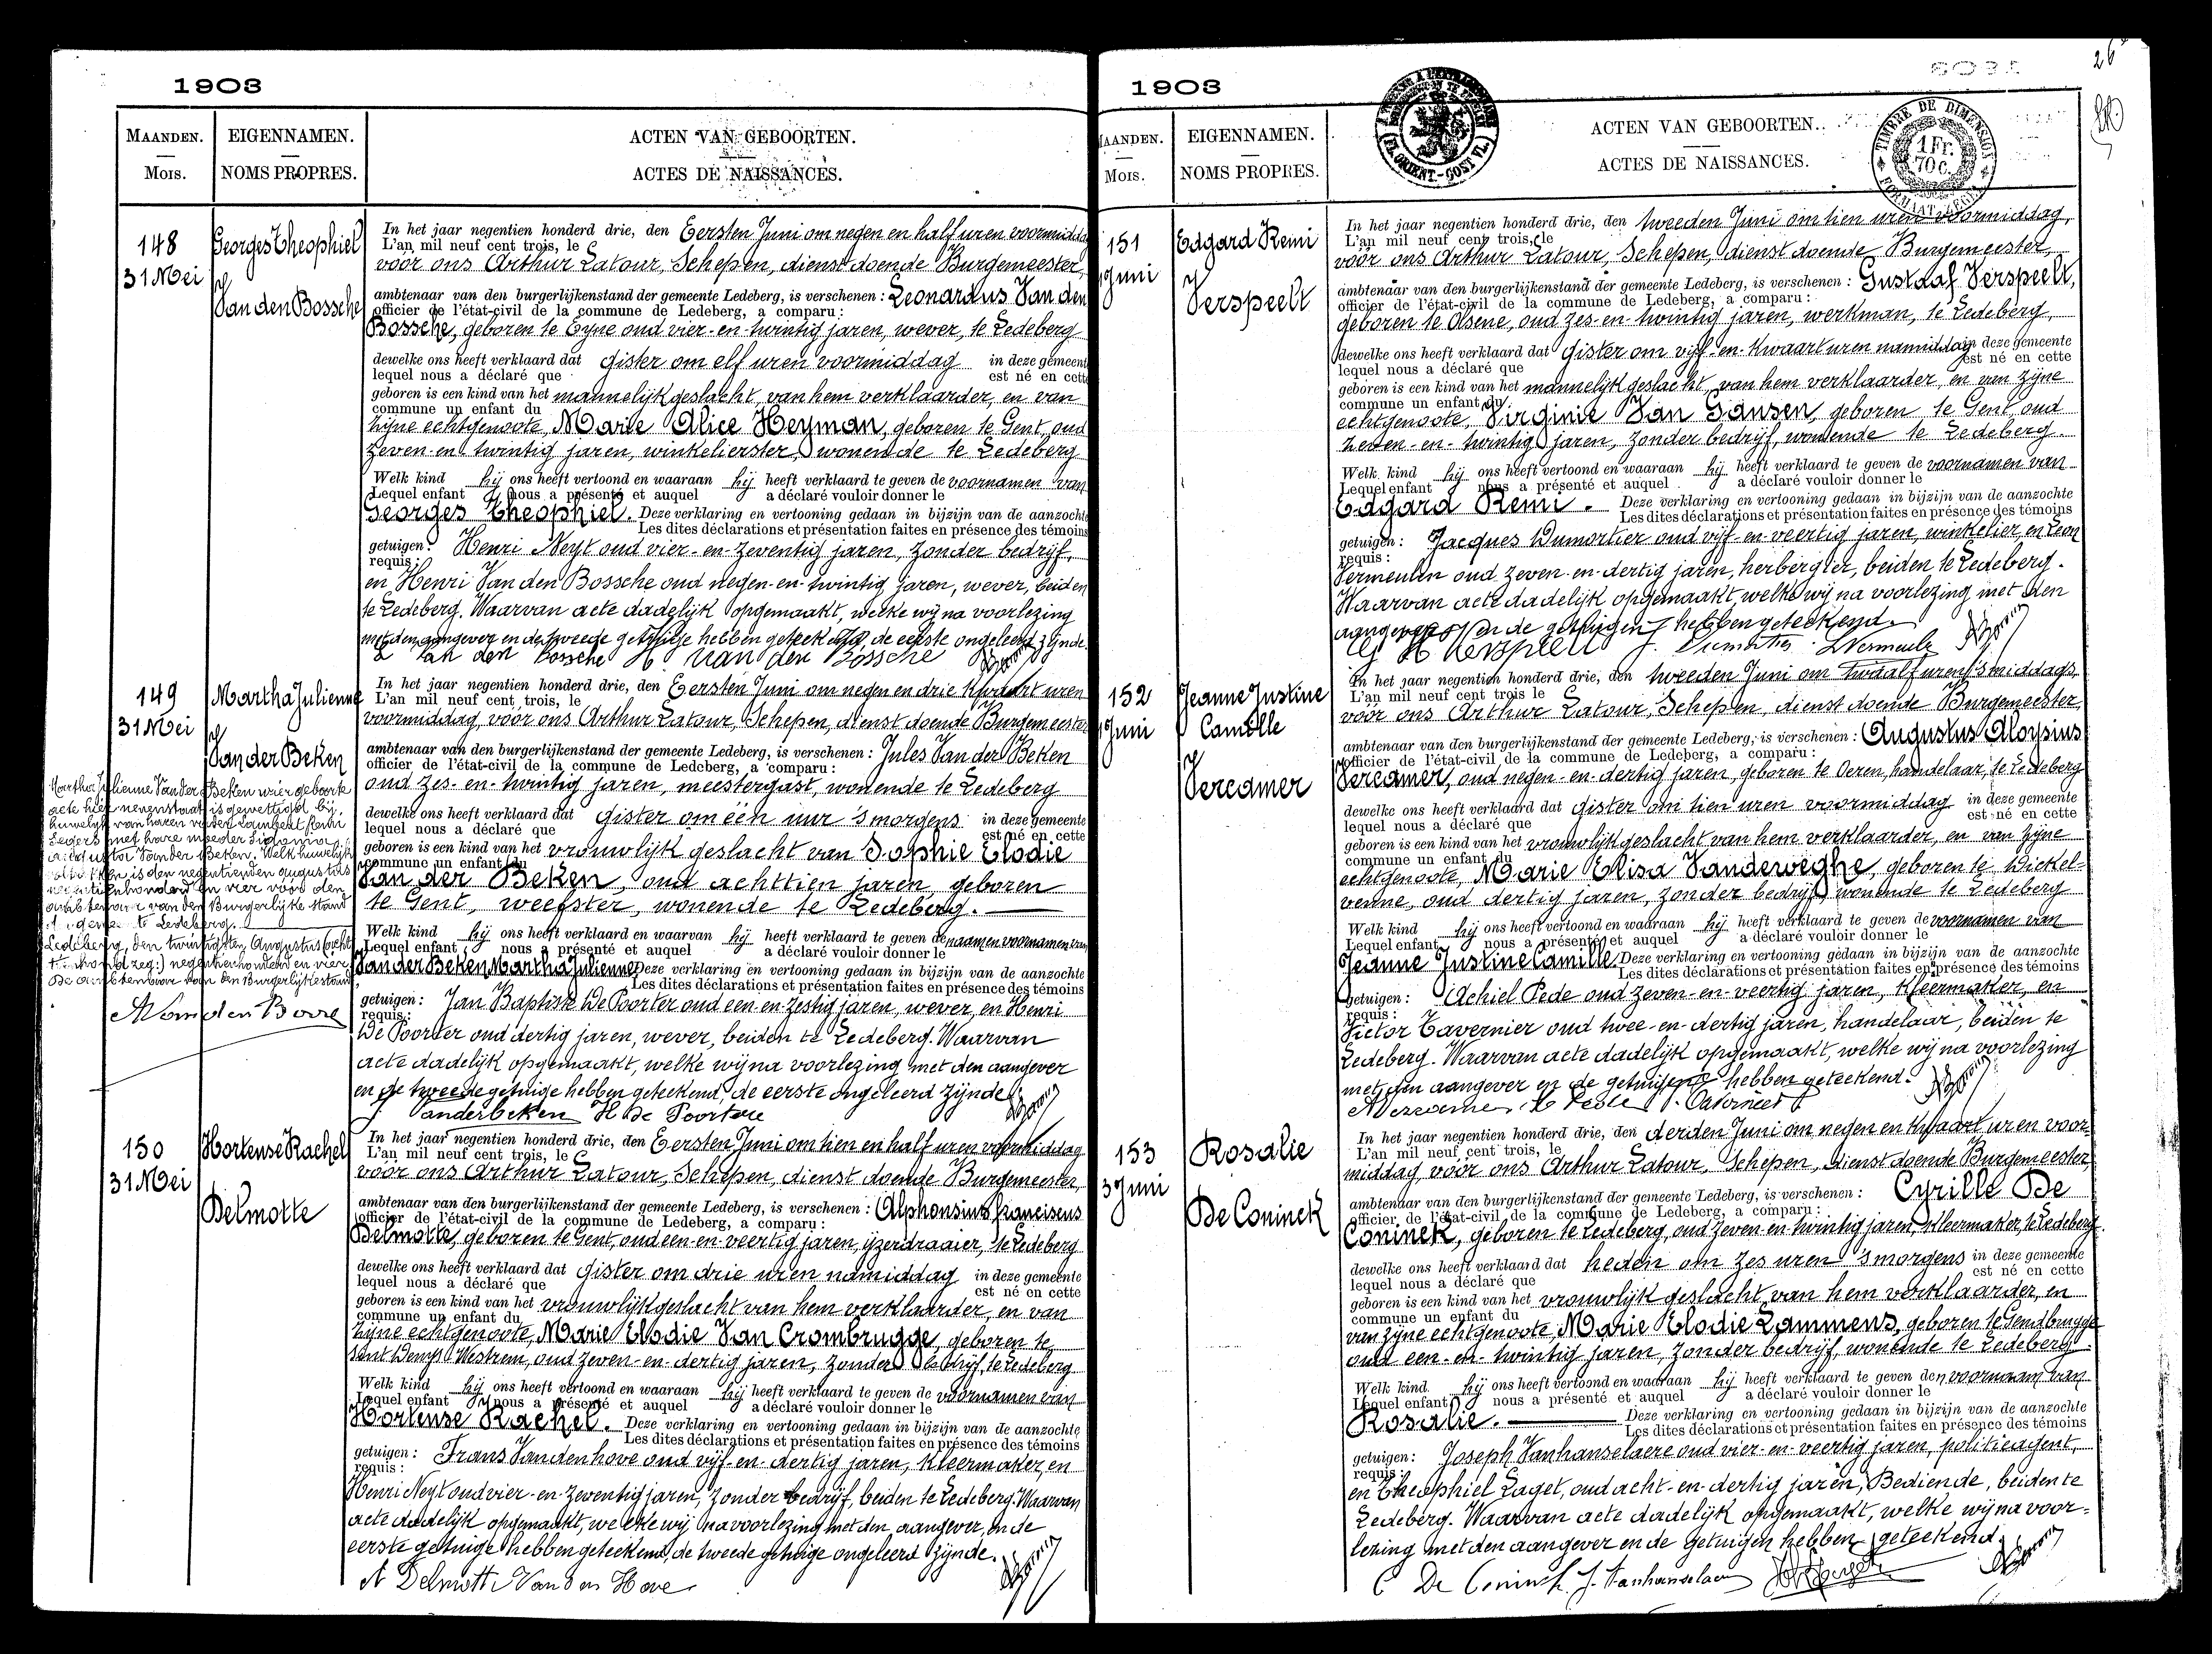 1903
MAANDEN.
Mois.
EIGENNAMEN.
NOMS PROPRES.
ACTEN VAN GEBOORTEN.
ACTES DE NAISSANCES.
148
31 Mei
Georges Theophiel
Van den Bossche
In het jaar negentien honderd drie, den Eersten Juni om negen en half uren voormiddag
L'an mil neuf cent trois, le
voor ons Arthur Latour, Schepen, dienstdoende Burgemeester,
ambtenaar van den burgerlijkenstand der gemeente Ledeberg, is verschenen : Leonardus Van den
officier de l'état-civil de la commune de Ledeberg, a comparu :
Bossche, geboren te Eyne oud vier-en-twintig jaren, wever, te Ledeberg
dewelke ons heeft verklaard dat gister om elf uren voormiddag in deze gemeente
lequel nous a déclaré que est né en cette
geboren is een kind van het mannelijk geslacht, van hem verklaarder, en van
commune un enfant du
zijne echtgenoote, Marie Alice Heyman, geboren te Gent, oud
zeven-en-twintig jaren, winkelierster, wonende te Ledeberg
Welk kind hij ons heeft vertoond en waaraan hij heeft verklaard te geven de voornamen van
Lequel enfant nous a présenté et auquel a déclaré vouloir donner le
Georges Theophiel. Deze verklaring en vertooning gedaan in bijzijn van de aanzochte
Les dites déclarations et présentation faites en présence des témoins
getuigen : Henri Neyt oud vier-en-zeventig jaren, zonder bedrijf,
requis :
en Henri Van den Bossche oud negen-en-twintig jaren, wever, beiden
te Ledeberg. Waarvan acte dadelijk opgemaakt, welke wij na voorlezing
met den aangever en de tweede getuige hebben geteekend, de eerste ongeleerd zijnde.
L Van den Bossche H Van den Bossche
149
31 Mei
Martha Julienne
Van der Beken
In het jaar negentien honderd drie, den Eersten Juni om negen en drie kwaart uren
L'an mil neuf cent trois, le
voormiddag, voor ons Arthur Latour, Schepen, dienstdoende Burgemeester
ambtenaar van den burgerlijkenstand der gemeente Ledeberg, is verschenen : Jules Van der Beken
officier de l'état-civil de la commune de Ledeberg, a comparu :
oud zes-en-twintig jaren, meestergast, wonende te Ledeberg
dewelke ons heeft verklaard dat gister om één uur 's morgens in deze gemeente
lequel nous a déclaré que est né en cette
geboren is een kind van het vrouwlijk geslacht van Sophie Elodie
commune un enfant du
Van der Beken, oud achttien jaren, geboren
te Gent, weefster, wonende te Ledeberg.
Welk kind hij ons heeft vertoond en waarvan hij heeft verklaard te geven de naam en voornamen van
Lequel enfant nous a présenté et auquel a déclaré vouloir donner le
Van der Beken Martha Julienne Deze verklaring en vertooning gedaan in bijzijn van de aanzochte
Les dites déclarations et présentation faites en présence des témoins
getuigen : Jan Baptiste De Poorter oud een-en-zestig jaren, wever, en Henri
requis :
De Poorter oud dertig jaren, wever, beiden te Ledeberg. Waarvan
acte dadelijk opgemaakt, welke wij na voorlezing met den aangever
en de tweede getuige hebben geteekend, de eerste ongeleerd zijnde.
J Vanderbeken H De Poortere
Martha Julienne Van der Beken wier geboorte
acte hier nevenstaat is gewettigd bij
huwelijk van haren vader Lambert Remi
Segers met hare moeder
Van der Beken. Welk huwelijk
is den negentienden Augustus
negentienhonderd en vier voor den
ambtenaar van den Burgerlijke stand
te Ledeberg.
Ledeberg, den twintigsten Augustus
negentienhonderd en vier
De ambtenaar van den Burgerlijkestand
150
31 Mei
Hortense Rachel
Delmotte
In het jaar negentien honderd drie, den Eersten Juni om tien en half uren voormiddag
L'an mil neuf cent trois, le
voor ons Arthur Latour, Schepen, dienstdoende Burgemeester,
ambtenaar van den burgerlijkenstand der gemeente Ledeberg, is verschenen : Alphonsius Franciscus
officier de l'état-civil de la commune de Ledeberg, a comparu :
Delmotte, geboren te Gent, oud een-en-veertig jaren, ijzerdraaier, te Ledeberg
dewelke ons heeft verklaard dat gister om drie uren namiddag in deze gemeente
lequel nous a déclaré que est né en cette
geboren is een kind van het vrouwlijk geslacht van hem verklaarder, en van
commune un enfant du
zijne echtgenoote, Marie Elodie Van Crombrugge, geboren te
Sint Denijs Westrem, oud zeven-en-dertig jaren, zonder bedrijf, te Ledeberg
Welk kind hij ons heeft vertoond en waaraan hij heeft verklaard te geven de voornamen van
Lequel enfant nous a présenté et auquel a déclaré vouloir donner le
Hortense Rachel. Deze verklaring en vertooning gedaan in bijzijn van de aanzochte
Les dites déclarations et présentation faites en présence des témoins
getuigen : Frans Vandenhove oud vijf-en-dertig jaren, kleermaker, en
requis :
Henri Neyt oud vier-en-zeventig jaren, zonder bedrijf, beiden te Ledeberg. Waarvan
acte dadelijk opgemaakt, welke wij na voorlezing met den aangever, en de
eerste getuige hebben geteekend, de tweede getuige ongeleerd zijnde.
A Delmotte Van den Hove
1903
26
MAANDEN.
Mois.
EIGENNAMEN.
NOMS PROPRES.
ACTEN VAN GEBOORTEN.
ACTES DE NAISSANCES.
(FL. ORIENT.-OOST VL.)
TIMBRE DE DIMENSION
1 Fr.
70 c.
151
1 Juni
Edgard Remi
Verspeelt
In het jaar negentien honderd drie, den tweeden Juni om tien uren voormiddag,
L'an mil neuf cent trois, le
voor ons Arthur Latour, Schepen, dienstdoende Burgemeester,
ambtenaar van den burgerlijkenstand der gemeente Ledeberg, is verschenen : Gustaaf Verspeelt,
officier de l'état-civil de la commune de Ledeberg, a comparu :
geboren te Olsene, oud zes-en-twintig jaren, werkman, te Ledeberg,
dewelke ons heeft verklaard dat gister om vijf-en-kwaart uren namiddag in deze gemeente
lequel nous a déclaré que est né en cette
geboren is een kind van het mannelijk geslacht, van hem verklaarder, en van zijne
commune un enfant du
echtgenoote, Virginie Van Gansen, geboren te Gent, oud
zeven-en-twintig jaren, zonder bedrijf, wonende te Ledeberg.
Welk kind hij ons heeft vertoond en waaraan hij heeft verklaard te geven de voornamen van
Lequel enfant nous a présenté et auquel a déclaré vouloir donner le
Edgard Remi. Deze verklaring en vertooning gedaan in bijzijn van de aanzochte
Les dites déclarations et présentation faites en présence des témoins
getuigen : Jacques Dumortier oud vijf-en-veertig jaren, winkelier, en Leon
requis :
Vermeulen oud zeven-en-dertig jaren, herbergier, beiden te Ledeberg.
Waarvan acte dadelijk opgemaakt, welke wij na voorlezing met den
aangever en de getuigen hebben geteekend.
152
1 Juni
Jeanne Justine
Camille
Vercamer
In het jaar negentien honderd drie, den tweeden Juni om twaalf uren 's middags,
L'an mil neuf cent trois le
voor ons Arthur Latour, Schepen, dienstdoende Burgemeester,
ambtenaar van den burgerlijkenstand der gemeente Ledeberg, is verschenen : Augustus Aloysius
officier de l'état-civil de la commune de Ledeberg, a comparu :
Vercamer, oud negen-en-dertig jaren, geboren te Oeren, handelaar, te Ledeberg
dewelke ons heeft verklaard dat gister om tien uren voormiddag in deze gemeente
lequel nous a déclaré que est né en cette
geboren is een kind van het vrouwlijk geslacht van hem verklaarder, en van zijne
commune un enfant du
echtgenoote, Marie Elisa Vanderweghe, geboren te Wickel-
venne, oud dertig jaren, zonder bedrijf, wonende te Ledeberg
Welk kind hij ons heeft vertoond en waaraan hij heeft verklaard te geven de voornamen van
Lequel enfant nous a présenté et auquel a déclaré vouloir donner le
Jeanne Justine Camille. Deze verklaring en vertooning gedaan in bijzijn van de aanzochte
Les dites déclarations et présentation faites en présence des témoins
getuigen : Achiel Pede oud zeven-en-veertig jaren, kleermaker, en
requis :
Victor Tavernier oud twee-en-dertig jaren, handelaar, beiden te
Ledeberg. Waarvan acte dadelijk opgemaakt, welke wij na voorlezing
met den aangever en de getuigen hebben geteekend.
153
3 Juni
Rosalie
De Coninck
In het jaar negentien honderd drie, den derden Juni om negen en kwaart uren voor-
L'an mil neuf cent trois, le
middag, voor ons Arthur Latour, Schepen, dienstdoende Burgemeester
ambtenaar van den burgerlijkenstand der gemeente Ledeberg, is verschenen : Cyrille De
officier de l'état-civil de la commune de Ledeberg, a comparu :
Coninck, geboren te Ledeberg, oud zeven-en-twintig jaren, kleermaker, te Ledeberg.
dewelke ons heeft verklaard dat heden om zes uren 's morgens in deze gemeente
lequel nous a déclaré que est né en cette
geboren is een kind van het vrouwlijk geslacht van hem verklaarder, en
commune un enfant du
van zijne echtgenoote, Marie Elodie Lammens, geboren te Gendbrugge
oud een-en-twintig jaren, zonder bedrijf, wonende te Ledeberg.
Welk kind hij ons heeft vertoond en waaraan hij heeft verklaard te geven den voornaam van
Lequel enfant nous a présenté et auquel a déclaré vouloir donner le
Rosalie. Deze verklaring en vertooning gedaan in bijzijn van de aanzochte
Les dites déclarations et présentation faites en présence des témoins
getuigen : Joseph Vanhanselaere oud vier-en-veertig jaren, politieagent,
requis :
en Theophiel Laget, oud acht-en-dertig jaren, Bediende, beiden te
Ledeberg. Waarvan acte dadelijk opgemaakt, welke wij na voor-
lezing met den aangever en de getuigen hebben geteekend.
C De Coninck. J. Vanhanselaere